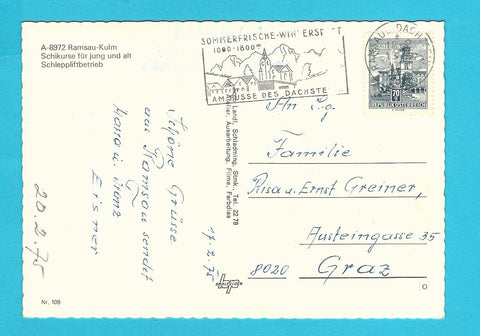 A-8972 Ramsau-Kulm
Schikurse für jung und alt
Schleppliftbetrieb
SOMMERFRISCHE-WINTERSPORT
1000-1800m
AM FUSSE DES DACHSTEIN
RAMSAU
DACH
REPUBLIK ÖSTERREICH
An Fg.
Familie
Risa u. Ernst Greiner,
Austeingasse 35
8020 Graz
Schöne Grüsse
aus Ramsau sendet
Eisner
17.2.75
20.2.75
Landl, Schladming, Stmk., Tel. 22 78
Atelier, Ausarbeitung, Filme, Farbdias
bp
Nr. 109